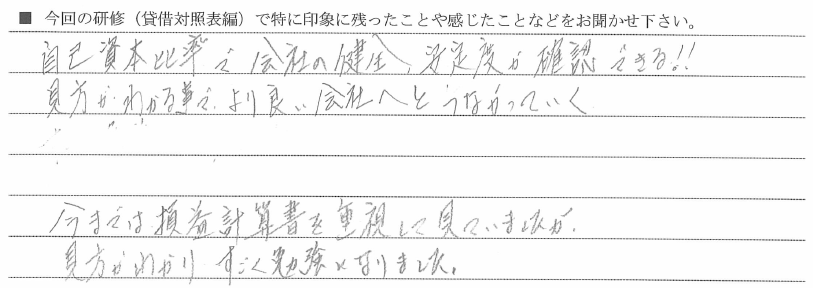 ■ 今回の研修（貸借対照表編）で特に印象に残ったことや感じたことなどをお聞かせ下さい。
自己資本比率で会社の健全、安定度が確認できる!!
見方がわかる事で、より良い会社へとつながっていく
今までは損益計算書を重視して見ていましたが、
見方がわかり すごく勉強になりました。